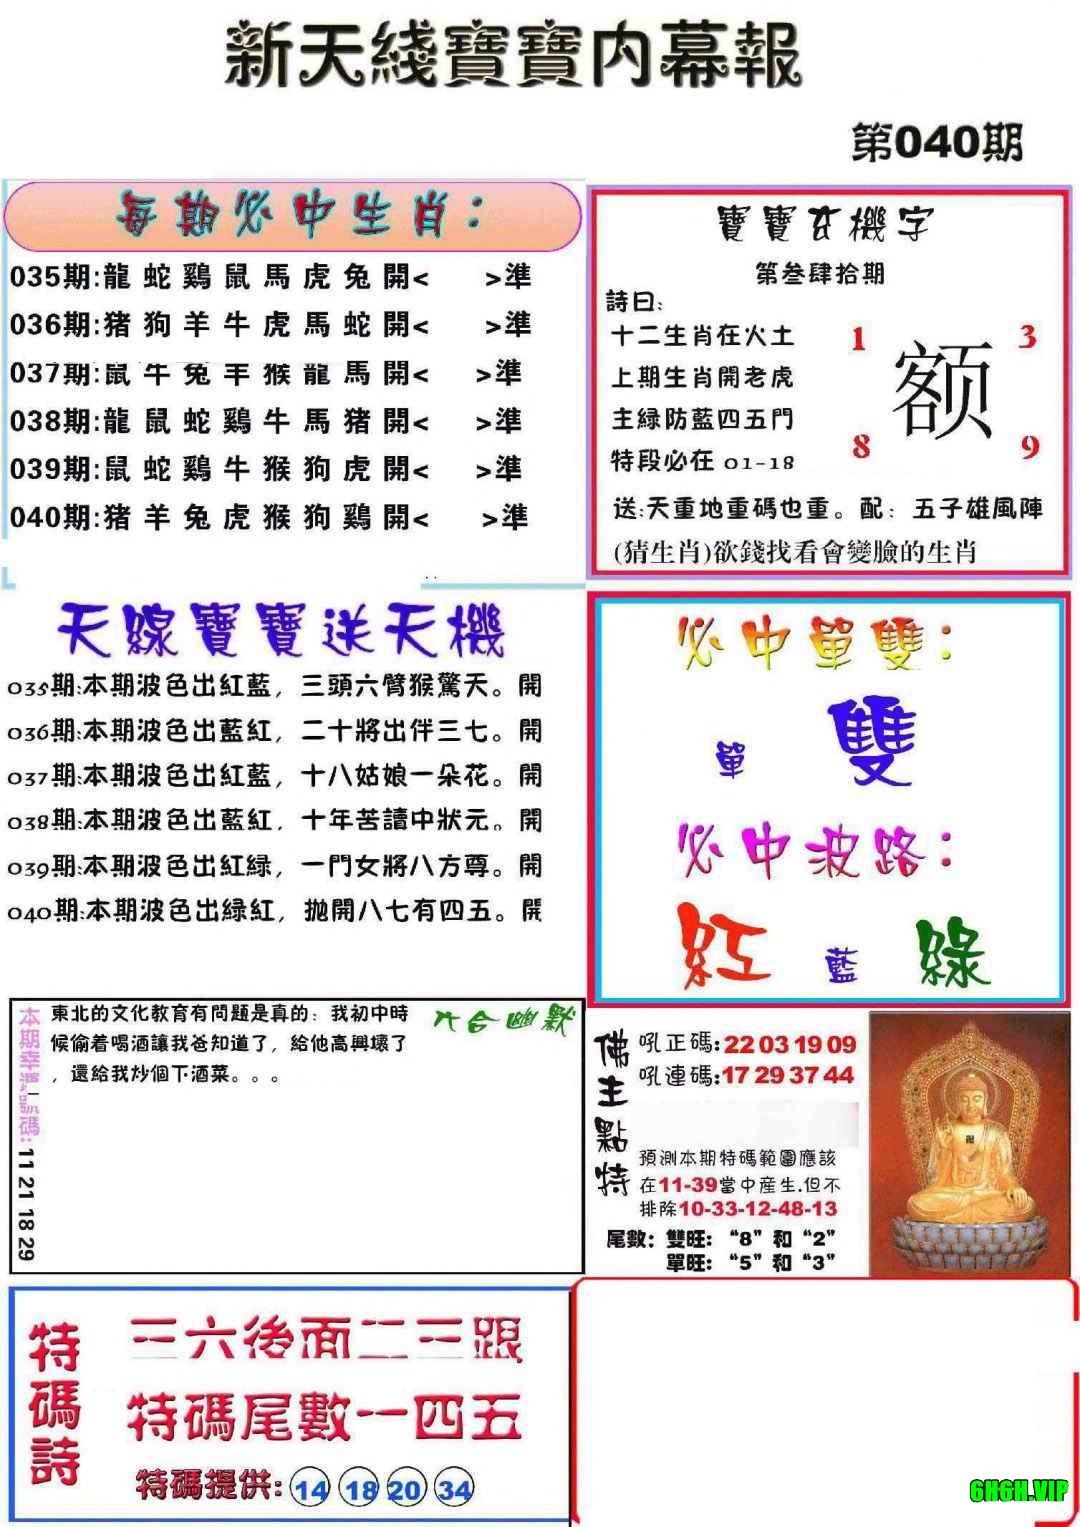 新天綫寶寶内幕報
第040期
每期必中生肖：
035期:龍 蛇 鷄 鼠 馬 虎 兔 開< >準
036期:猪 狗 羊 牛 虎 馬 蛇 開< >準
037期:鼠 牛 兔 羊 猴 龍 馬 開< >準
038期:龍 鼠 蛇 鷄 牛 馬 猪 開< >準
039期:鼠 蛇 鷄 牛 猴 狗 虎 開< >準
040期:猪 羊 兔 虎 猴 狗 鷄 開< >準
寶寶玄機字
第叁肆拾期
詩曰:
十二生肖在火土
上期生肖開老虎
主緑防藍四五門
特段必在 01-18
1 3
额
8 9
送:天重地重碼也重。配：五子雄風陣
(猜生肖)欲錢找看會變臉的生肖
天線寶寶送天機
035期:本期波色出紅藍，三頭六臂猴驚天。開
036期:本期波色出藍紅，二十將出伴三七。開
037期:本期波色出紅藍，十八姑娘一朵花。開
038期:本期波色出藍紅，十年苦讀中狀元。開
039期:本期波色出紅緑，一門女將八方尊。開
040期:本期波色出緑紅，抛開八七有四五。開
必中單雙：
單 雙
必中波路：
紅 藍 綠
本期幸運號碼:11 21 18 29
六合幽默
東北的文化教育有問題是真的：我初中時
候偷着喝酒讓我爸知道了，給他高興壞了
，還給我炒個下酒菜。。。
佛主點特
吼正碼:22 03 19 09
吼連碼:17 29 37 44
預測本期特碼範圍應該
在11-39當中産生.但不
排除10-33-12-48-13
尾數：雙旺：“8”和“2”
單旺：“5”和“3”
特碼詩
三六後面二三跟
特碼尾數一四五
特碼提供: 14 18 20 34
6H6H.VIP